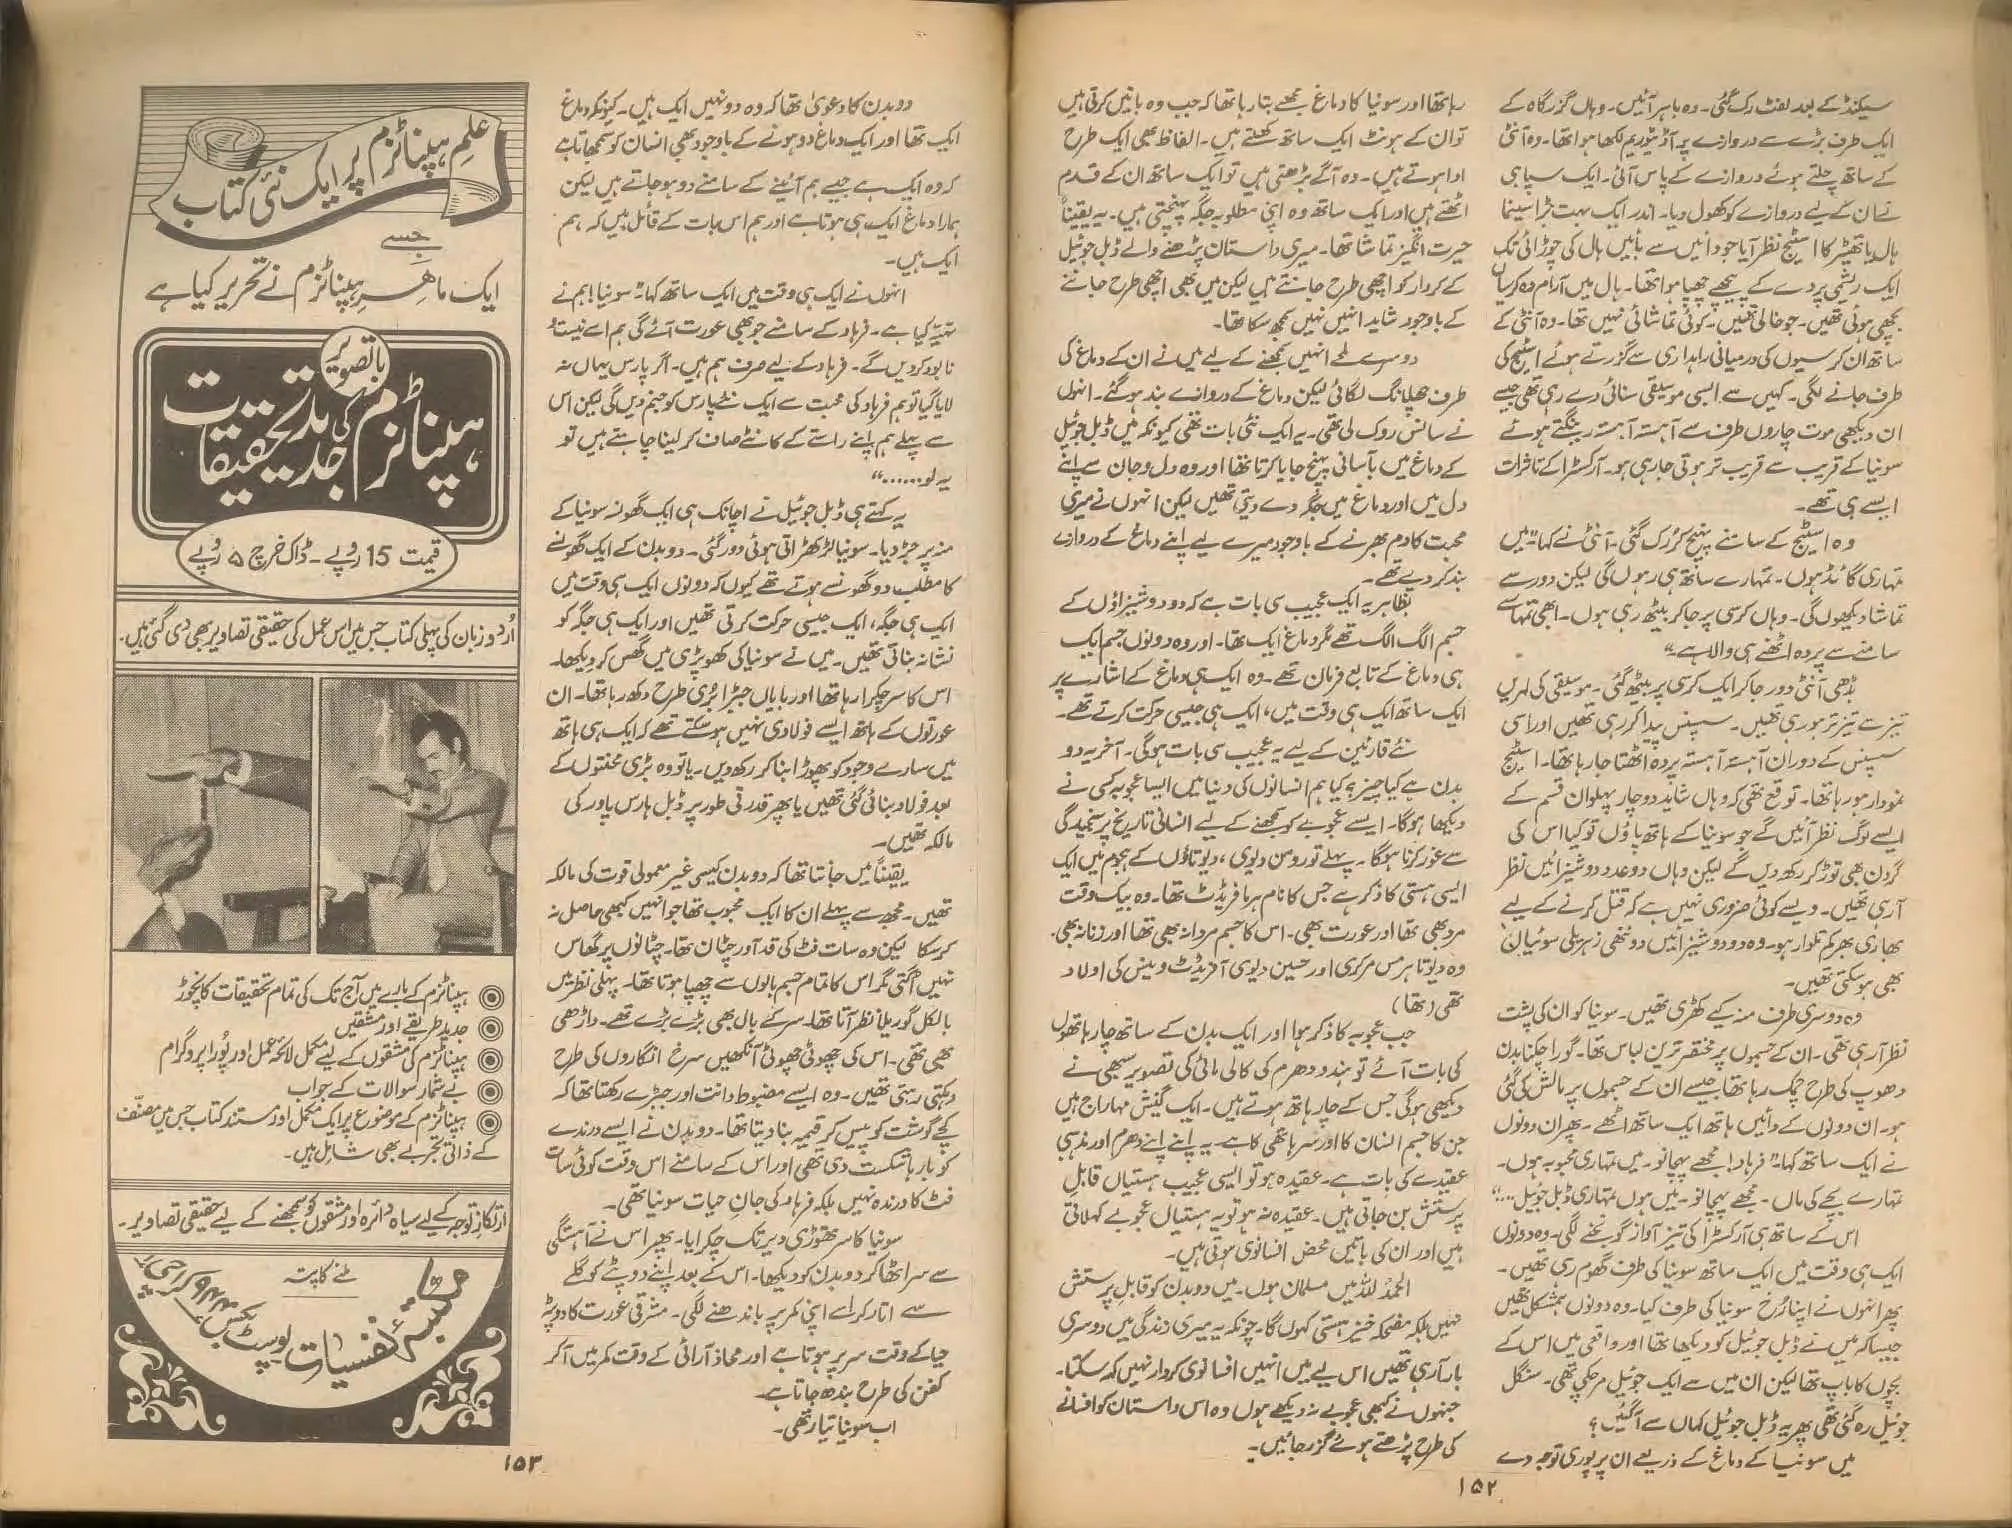 سیکنڈ کے بعد لفٹ رک گئی۔ وہ باہر آئیں۔ وہاں گزرگاہ کے
ایک طرف بڑے سے دروازے پر آڈیٹوریم لکھا ہوا تھا۔ وہ آنٹی
کے ساتھ چلتے ہوئے دروازے کے پاس آئی۔ ایک سپاہی
نے ان کے لیے دروازے کو کھول دیا۔ اندر ایک بہت بڑا سینما
ہال یا تھیٹر کا اسٹیج نظر آیا جو دائیں سے بائیں ہال کی چوڑائی تک
ایک ریشمی پردے کے پیچھے چھپا ہوا تھا۔ ہال میں آرام دہ کرسیاں
بچھی ہوئی تھیں۔ جو خالی تھیں۔ کوئی تماشائی نہیں تھا۔ وہ آنٹی کے
ساتھ ان کرسیوں کی درمیانی راہداری سے گزرتے ہوئے اسٹیج کی
طرف جانے لگی۔ کہیں سے ایسی موسیقی سنائی دے رہی تھی جیسے
ان دیکھی موت چاروں طرف سے آہستہ آہستہ رینگتے ہوئے
سونیا کے قریب سے قریب تر ہوتی جا رہی ہو۔ آرکسٹرا کے تاثرات
ایسے ہی تھے۔
وہ اسٹیج کے سامنے پہنچ کر رک گئی۔ آنٹی نے کہا "میں
تمہاری گائڈ ہوں۔ تمہارے ساتھ ہی رہوں گی لیکن دور سے
تماشا دیکھوں گی۔ وہاں کرسی پر جا کر بیٹھ رہی ہوں۔ ابھی تمہارے
سامنے سے پردہ اٹھنے ہی والا ہے۔"
بڈھی آنٹی دور جا کر ایک کرسی پر بیٹھ گئی۔ موسیقی کی لہریں
تیز سے تیز تر ہو رہی تھیں۔ سسپنس پیدا کر رہی تھیں اور اسی
سسپنس کے دوران آہستہ آہستہ پردہ اٹھتا جا رہا تھا۔ اسٹیج
نمودار ہو رہا تھا۔ توقع تھی کہ وہاں شاید دو چار پہلوان قسم کے
ایسے لوگ نظر آئیں گے جو سونیا کے ہاتھ پاؤں تو کیا اس کی
گردن بھی توڑ کر رکھ دیں گے لیکن وہاں دو عدد دوشیزائیں نظر
آ رہی تھیں۔ ویسے کوئی ضروری نہیں ہے کہ قتل کرنے کے لیے
بھاری بھرکم تلوار ہو۔ وہ دو دوشیزائیں دو ننھی زہریلی سوئیاں
بھی ہو سکتی تھیں۔
وہ دوسری طرف منہ کیے کھڑی تھیں۔ سونیا کو ان کی پشت
نظر آ رہی تھی۔ ان کے جسموں پر مختصر ترین لباس تھا۔ گورا چکنا بدن
دھوپ کی طرح چمک رہا تھا جیسے ان کے جسموں پر مالش کی گئی
ہو۔ ان دونوں کے دائیں ہاتھ ایک ساتھ اٹھے۔ پھر ان دونوں
نے ایک ساتھ کہا۔ "فرہاد! مجھے پہچانو۔ میں تمہاری محبوبہ ہوں۔
تمہارے بچے کی ماں۔ مجھے پہچانو۔ میں ہوں تمہاری ڈبل جوئیل ....."
اس کے ساتھ ہی آرکسٹرا کی تیز آواز گونجنے لگی۔ وہ دونوں
ایک ہی وقت میں ایک ساتھ سونیا کی طرف گھوم رہی تھیں۔
پھر انہوں نے اپنا رُخ سونیا کی طرف کیا۔ وہ دونوں ہمشکل تھیں
جیسا کہ میں نے ڈبل جوئیل کو دیکھا تھا اور واقعی میں اس کے
بچوں کا باپ تھا لیکن ان میں سے ایک جوئیل مر چکی تھی۔ سنگل
جوئیل رہ گئی تھی پھر یہ ڈبل جوئیل کہاں سے آ گئیں؟
میں سونیا کے دماغ کے ذریعے ان پر پوری توجہ دے
رہا تھا اور سونیا کا دماغ مجھے بتا رہا تھا کہ جب وہ باتیں کرتی ہیں
تو ان کے ہونٹ ایک ساتھ کھلتے ہیں۔ الفاظ بھی ایک طرح
ادا ہوتے ہیں۔ وہ آگے بڑھتی ہیں تو ایک ساتھ ان کے قدم
اٹھتے ہیں اور ایک ساتھ وہ اپنی مطلوبہ جگہ پہنچتی ہیں۔ یہ یقیناً
حیرت انگیز تماشا تھا۔ میری داستان پڑھنے والے ڈبل جوئیل
کے کردار کو اچھی طرح جانتے ہیں لیکن میں بھی اچھی طرح جاننے
کے باوجود شاید انہیں نہیں سمجھ سکا تھا۔
دوسرے لمحے انہیں سمجھنے کے لیے میں نے ان کے دماغ کی
طرف چھلانگ لگائی لیکن دماغ کے دروازے بند ہو گئے۔ انہوں
نے سانس روک لی تھی۔ یہ ایک نئی بات تھی کیونکہ میں ڈبل جوئیل
کے دماغ میں بآسانی پہنچ جایا کرتا تھا اور وہ دل و جان سے اپنے
دل میں اور دماغ میں جگہ دے دیتی تھیں لیکن انہوں نے میری
محبت کا دم بھرنے کے باوجود میرے لیے اپنے دماغ کے دروازے
بند کر دیے تھے۔
بظاہر یہ ایک عجیب سی بات ہے کہ دو دوشیزاؤں کے
جسم الگ الگ تھے مگر دماغ ایک تھا۔ اور وہ دونوں جسم ایک
ہی دماغ کے تابع فرمان تھے۔ وہ ایک ہی دماغ کے اشارے پر
ایک ساتھ ایک ہی وقت میں، ایک ہی جیسی حرکت کرتے تھے۔
نئے قارئین کے لیے یہ عجیب سی بات ہوگی۔ آخر یہ دو
بدن ہے کیا چیز؟ کیا ہم انسانوں کی دنیا میں ایسا عجوبہ کسی نے
دیکھا ہوگا۔ ایسے عجوبے کو سمجھنے کے لیے انسانی تاریخ پر سنجیدگی
سے غور کرنا ہوگا۔ پہلے تو رومن دیوی، دیوتاؤں کے ہجوم میں ایک
ایسی ہستی کا ذکر ہے جس کا نام ہرمافریڈٹ تھا۔ وہ بیک وقت
مرد بھی تھا اور عورت بھی۔ اس کا جسم مردانہ بھی تھا اور زنانہ بھی۔
وہ دیوتا ہرمس مرکری اور حسین دیوی آفریڈٹ وینس کی اولاد
تھی (تھا)
جب عجوبہ کا ذکر ہوا اور ایک بدن کے ساتھ چار ہاتھوں
کی بات آئے تو ہندو دھرم کی کالی مائی کی تصویر سبھی نے
دیکھی ہوگی جس کے چار ہاتھ ہوتے ہیں۔ ایک گنیش مہاراج ہیں
جن کا جسم انسان کا اور سر ہاتھی کا ہے۔ یہ اپنے اپنے دھرم اور مذہبی
عقیدے کی بات ہے۔ عقیدہ ہو تو ایسی عجیب ہستیاں قابلِ
پرستش بن جاتی ہیں۔ عقیدہ نہ ہو تو یہ ہستیاں عجوبے کہلاتی
ہیں اور ان کی باتیں محض افسانوی ہوتی ہیں۔
الحمدُ للہ میں مسلمان ہوں۔ میں دو بدن کو قابلِ پرستش
نہیں بلکہ مضحکہ خنیز ہستی کہوں گا۔ چونکہ یہ میری زندگی میں دوسری
بار آ رہی تھیں اس لیے میں انہیں افسانوی کردار نہیں کہہ سکتا۔
جنہوں نے کبھی عجوبے نہ دیکھے ہوں وہ اس داستان کو افسانے
کی طرح پڑھتے ہوئے گزر جائیں۔
۱۵۲
دو بدن کا دعویٰ تھا کہ وہ دو نہیں ایک ہیں۔ کیونکہ دماغ
ایک تھا اور ایک دماغ دو ہونے کے باوجود بھی انسان کو سمجھاتا ہے
کہ وہ ایک ہے جیسے ہم آئینے کے سامنے دو ہو جاتے ہیں لیکن
ہمارا دماغ ایک ہی ہوتا ہے اور ہم اس بات کے قائل ہیں کہ ہم
ایک ہیں۔
انہوں نے ایک ہی وقت میں ایک ساتھ کہا۔ "سونیا! ہم نے
تہیّہ کیا ہے۔ فرہاد کے سامنے جو بھی عورت آئے گی ہم اسے نیست و
نابود کر دیں گے۔ فرہاد کے لیے صرف ہم ہیں۔ اگر پارس یہاں نہ
لایا گیا تو ہم فرہاد کی محبت سے ایک نئے پارس کو جنم دیں گی لیکن اس
سے پہلے ہم اپنے راستے کے کانٹے صاف کر لینا چاہتے ہیں تو
یہ لو......"
یہ کہتے ہی ڈبل جوئیل نے اچانک ہی ایک گھونسہ سونیا کے
منہ پر جڑ دیا۔ سونیا لڑکھڑاتی ہوئی دور گئی۔ دو بدن کے ایک گھونسے
کا مطلب دو گھونسے ہوتے تھے کیوں کہ دونوں ایک ہی وقت میں
ایک ہی جگہ، ایک جیسی حرکت کرتی تھیں اور ایک ہی جگہ کو
نشانہ بناتی تھیں۔ میں نے سونیا کی کھوپڑی میں گھس کر دیکھا۔
اس کا سر چکرا رہا تھا اور بایاں جبڑا بُری طرح دکھ رہا تھا۔ ان
عورتوں کے ہاتھ ایسے فولادی نہیں ہو سکتے تھے کہ ایک ہی ہاتھ
میں سارے وجود کو پھوڑا بنا کر رکھ دیں۔ یا تو وہ بڑی محنتوں کے
بعد فولاد بنائی گئی تھیں یا پھر قدرتی طور پر ڈبل ہارس پاور کی
مالکہ تھیں۔
یقیناً میں جانتا تھا کہ دو بدن کیسی غیر معمولی قوت کی مالکہ
تھیں۔ مجھ سے پہلے ان کا ایک محبوب تھا جو انہیں کبھی حاصل نہ
کر سکا لیکن وہ سات فٹ کی قد آور چٹان تھا۔ چٹانوں پر گھاس
نہیں اگتی مگر اس کا تمام جسم بالوں سے چھپا ہوتا تھا۔ پہلی نظر میں
بالکل گوریلا نظر آتا تھا۔ سر کے بال بھی بڑے بڑے تھے۔ داڑھی
بھی تھی۔ اس کی چھوٹی چھوٹی آنکھیں سرخ انگاروں کی طرح
دہکتی رہتی تھیں۔ وہ ایسے مضبوط دانت اور جبڑے رکھتا تھا کہ
کچے گوشت کو پیس کر قیمہ بنا دیتا تھا۔ دو بدن نے ایسے درندے
کو بارہا شکست دی تھی اور اس کے سامنے اس وقت کوئی سات
فٹ کا درندہ نہیں بلکہ فرہاد کی جانِ حیات سونیا تھی۔
سونیا کا سر تھوڑی دیر تک چکرایا۔ پھر اس نے آہستگی
سے سر اٹھا کر دو بدن کو دیکھا۔ اس کے بعد اپنے دوپٹے کو گلے
سے اتار کر اسے اپنی کمر پر باندھنے لگی۔ مشرقی عورت کا دوپٹہ
حیا کے وقت سر پر ہوتا ہے اور محاذ آرائی کے وقت کمر میں آ کر
کفن کی طرح بندھ جاتا ہے۔
اب سونیا تیار تھی۔
علمِ ہپناٹزم پر ایک نئی کتاب
جسے
ایک ماہرِ ہپناٹزم نے تحریر کیا ہے
باتصویر
ہپناٹزم کی جدید تحقیقات
قیمت 15 روپے۔ ڈاک خرچ ۵ روپے
اُردو زبان کی پہلی کتاب جس میں اس عمل کی حقیقی تصاویر بھی دی گئی ہیں۔
ہپناٹزم کے بارے میں آج تک کی تمام تحقیقات کا نچوڑ
جدید طریقے اور مشقیں
ہپناٹزم کی مشقوں کے لیے مکمل لائحۂ عمل اور پُورا پروگرام
بے شمار سوالات کے جواب
ہپناٹزم کے موضوع پر ایک مکمل اور مستند کتاب جس میں مصنّف
کے ذاتی تجربے بھی شامل ہیں۔
ارتکازِ توجہ کے لیے سیاہ دائرہ اور مشقوں کو سمجھنے کے لیے حقیقی تصاویر۔
ملنے کا پتہ
مکتبہ نفسیات پوسٹ بکس ۹۴۴ کراچی ۱
۱۵۳